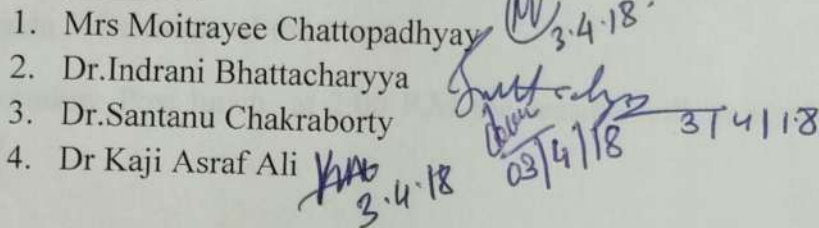 1. Mrs Moitrayee Chattopadhyay 3.4.18
2. Dr.Indrani Bhattacharyya
3. Dr.Santanu Chakraborty 03/4/18 3/4/18
4. Dr Kaji Asraf Ali 3.4.18